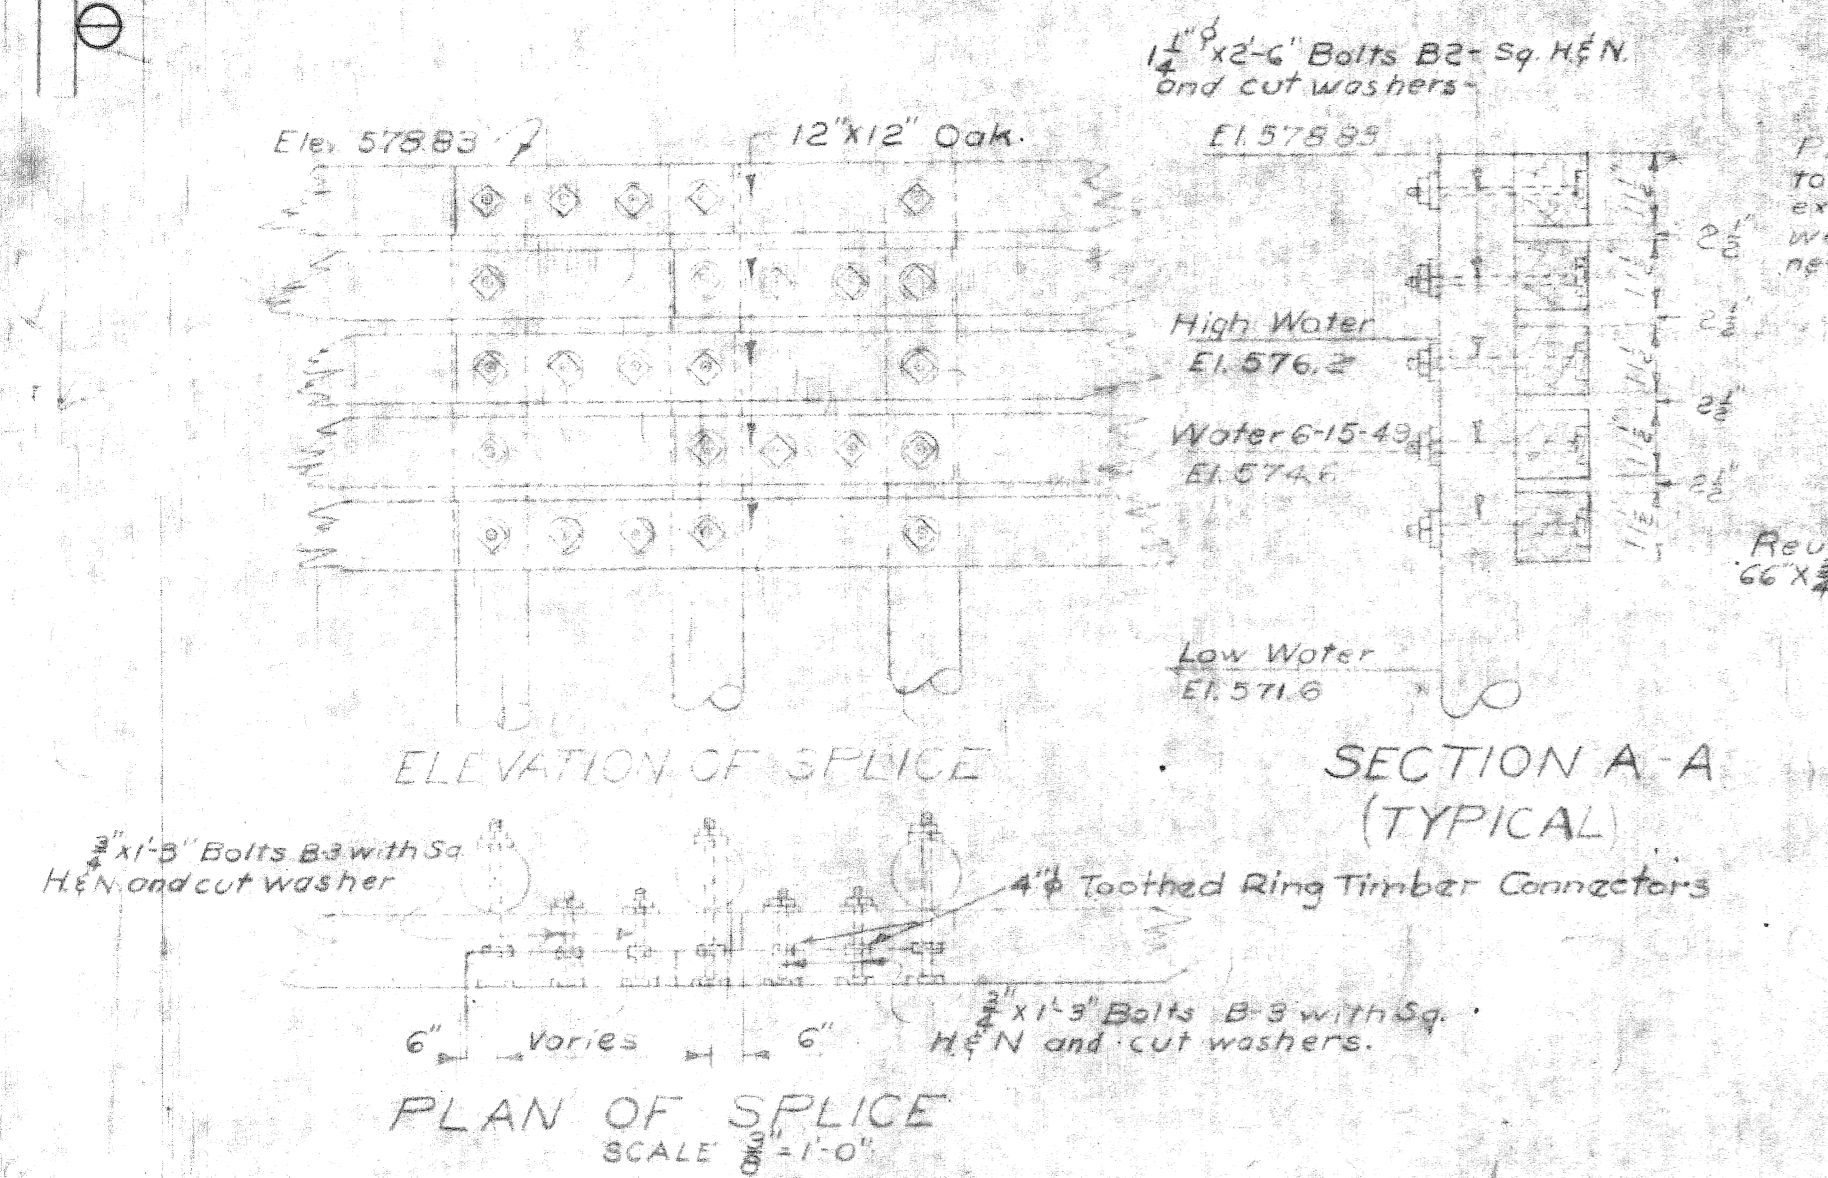 1 1/4"ϕ x 2'-6" Bolts B2- Sq. H.& N.
and cut washers-
Elev. 578.83
12"x12" Oak.
El. 578.83
11½"
2½"
11½"
2½"
11½"
2½"
11½"
2½"
11½"
High Water
El. 576.2
Water 6-15-49
El. 574.6
Low Water
El. 571.6
66"x
ELEVATION OF SPLICE
SECTION A-A
(TYPICAL)
¾"x1'-3" Bolts B-3 with Sq.
H.& N. and cut washer
4"ϕ Toothed Ring Timber Connectors
¾"x1'-3" Bolts B-3 with Sq.
H.& N and cut washers.
6"
Varies
6"
PLAN OF SPLICE
SCALE ⅜"=1'-0"